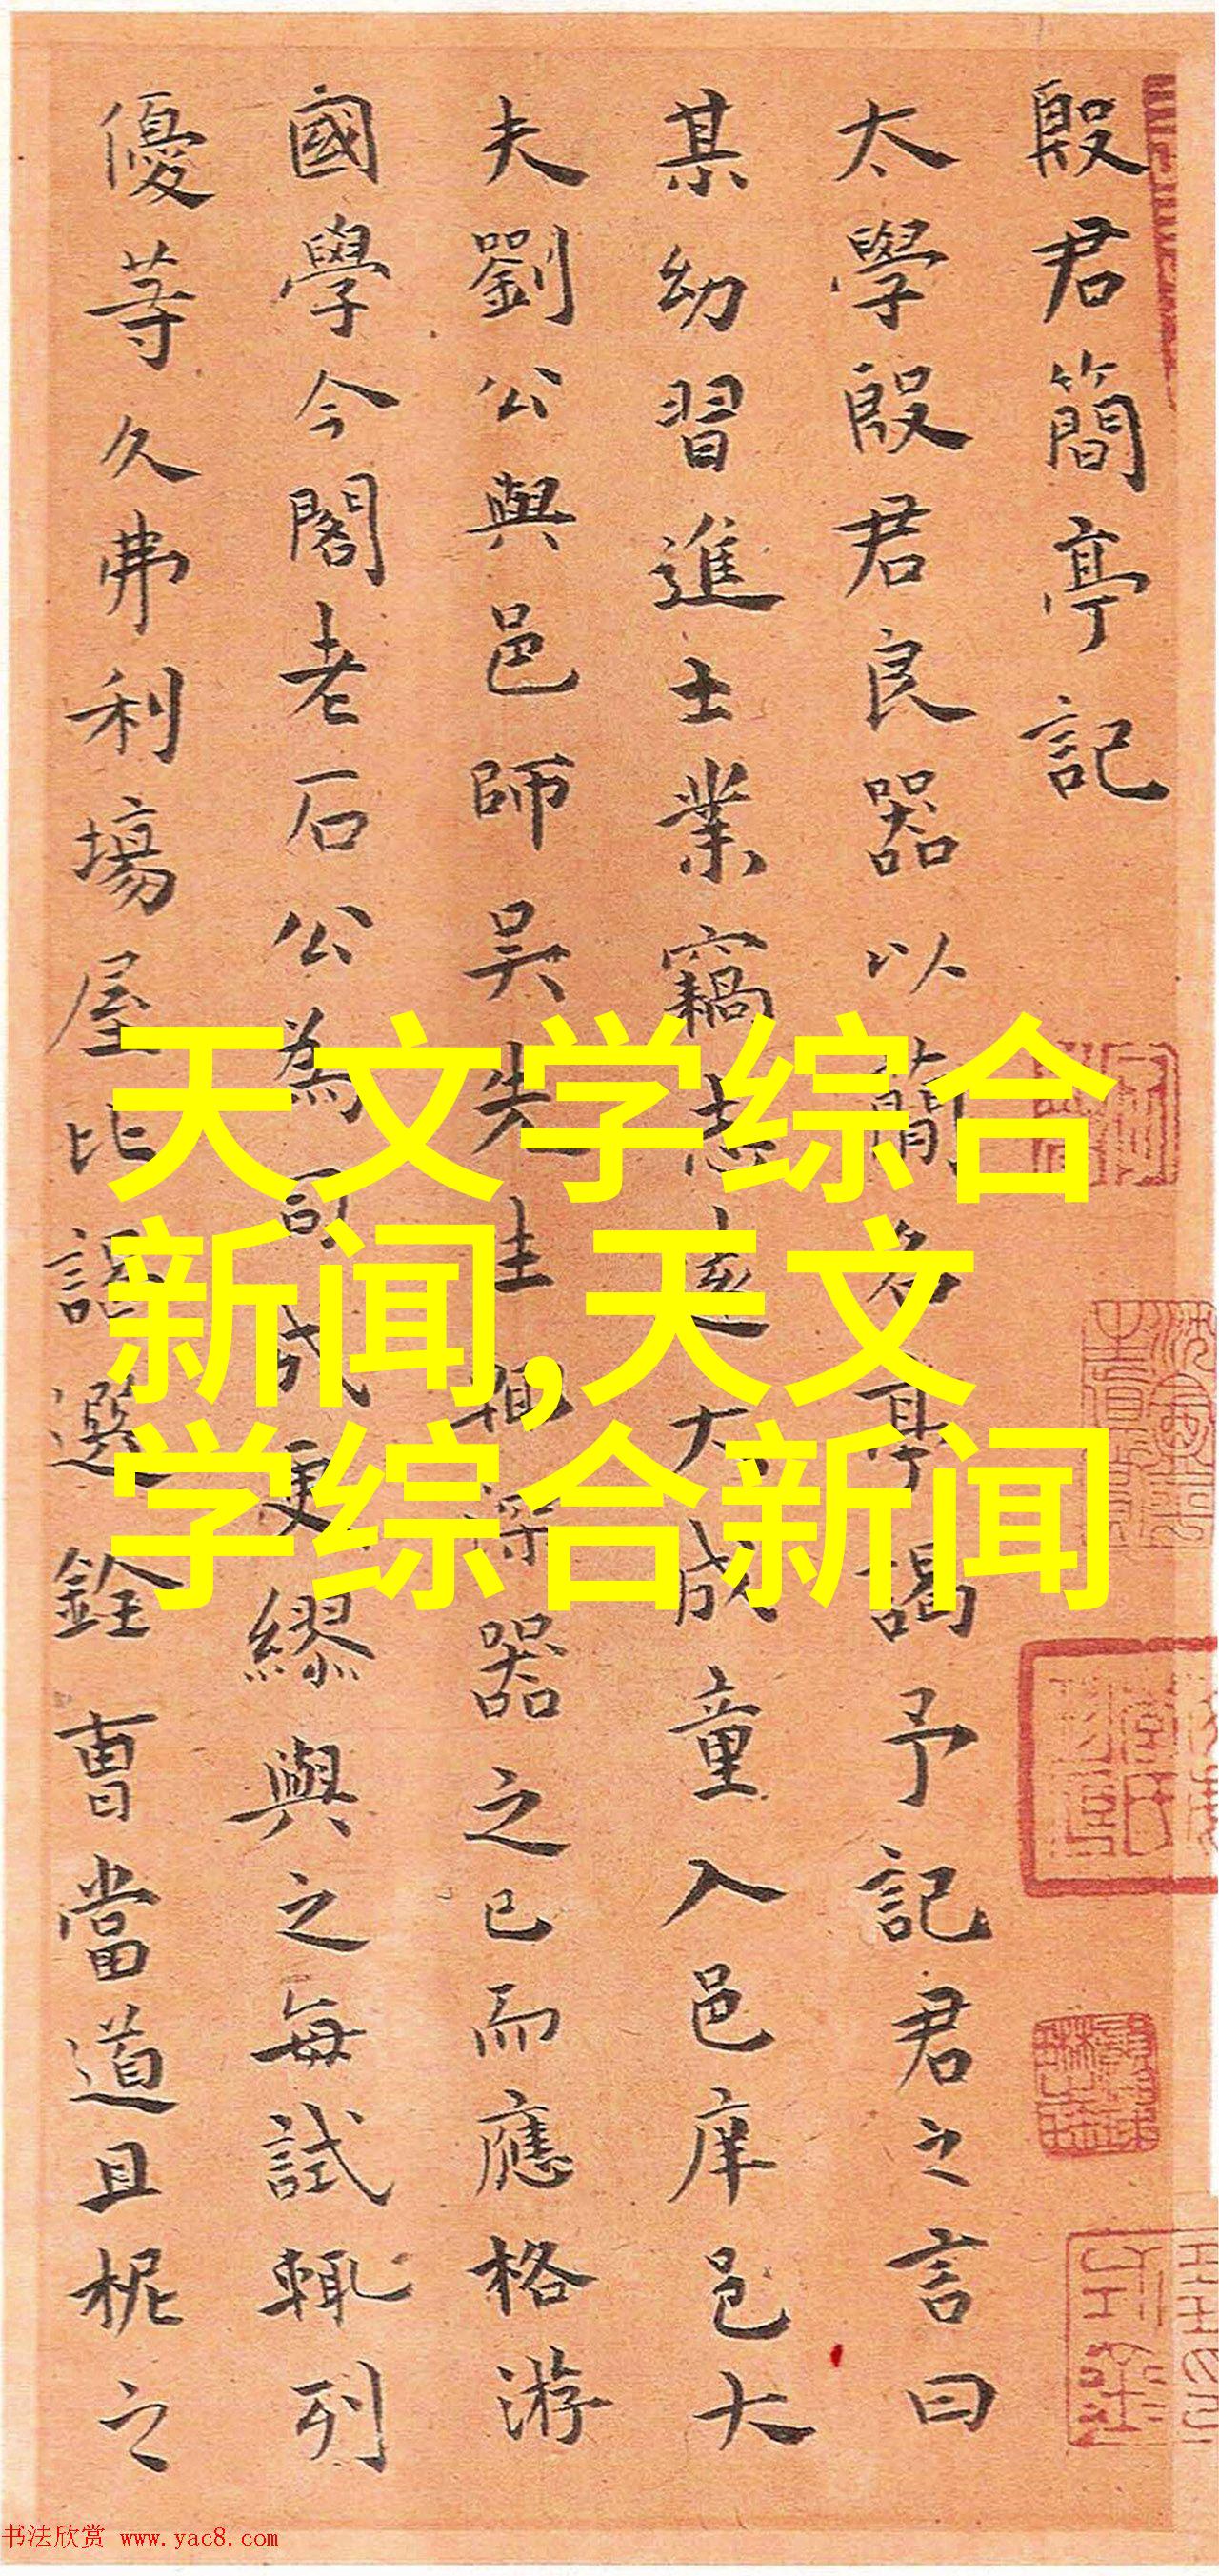 殷君簡亭記
太學殷君良器以簡名亭謁予記君之言曰
某幼習進士業竊志遠大成童入邑庠邑大
夫劉公與邑師吳先生俱深器之已而應格游
國學今閣老石公為司成更繆與之每試輒列
優等久弗利場屋比謁選銓曹當道且柅之
天文学综合
新闻,天文
学综合新闻
书法欣赏 www.yac8.com